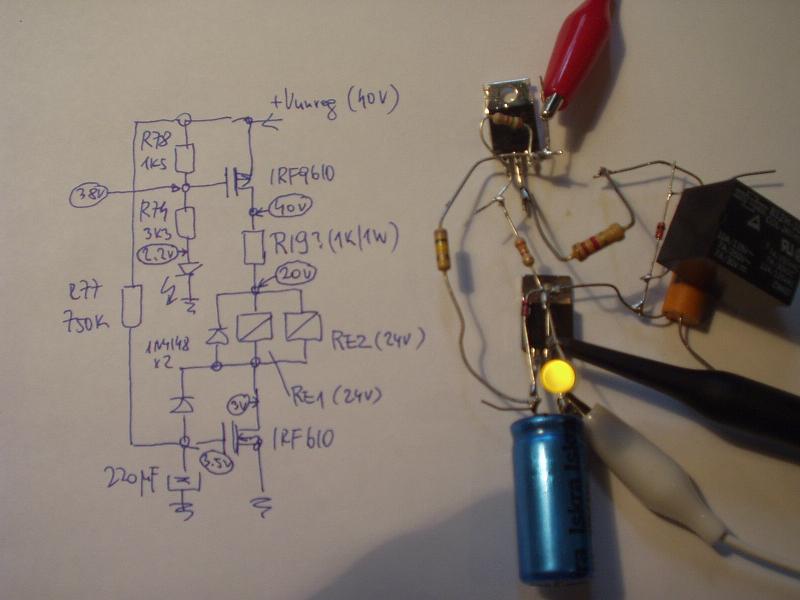 +Vunreg (40V)
R78
1K5
IRF9610
38V
40V
R79
3K3
R19? (1K/1W)
2.2V
20V
R77
750K
1N4148
x2
RE2 (24V)
RE1 (24V)
3V
IRF610
3.5V
220µF
Iskra Iskra